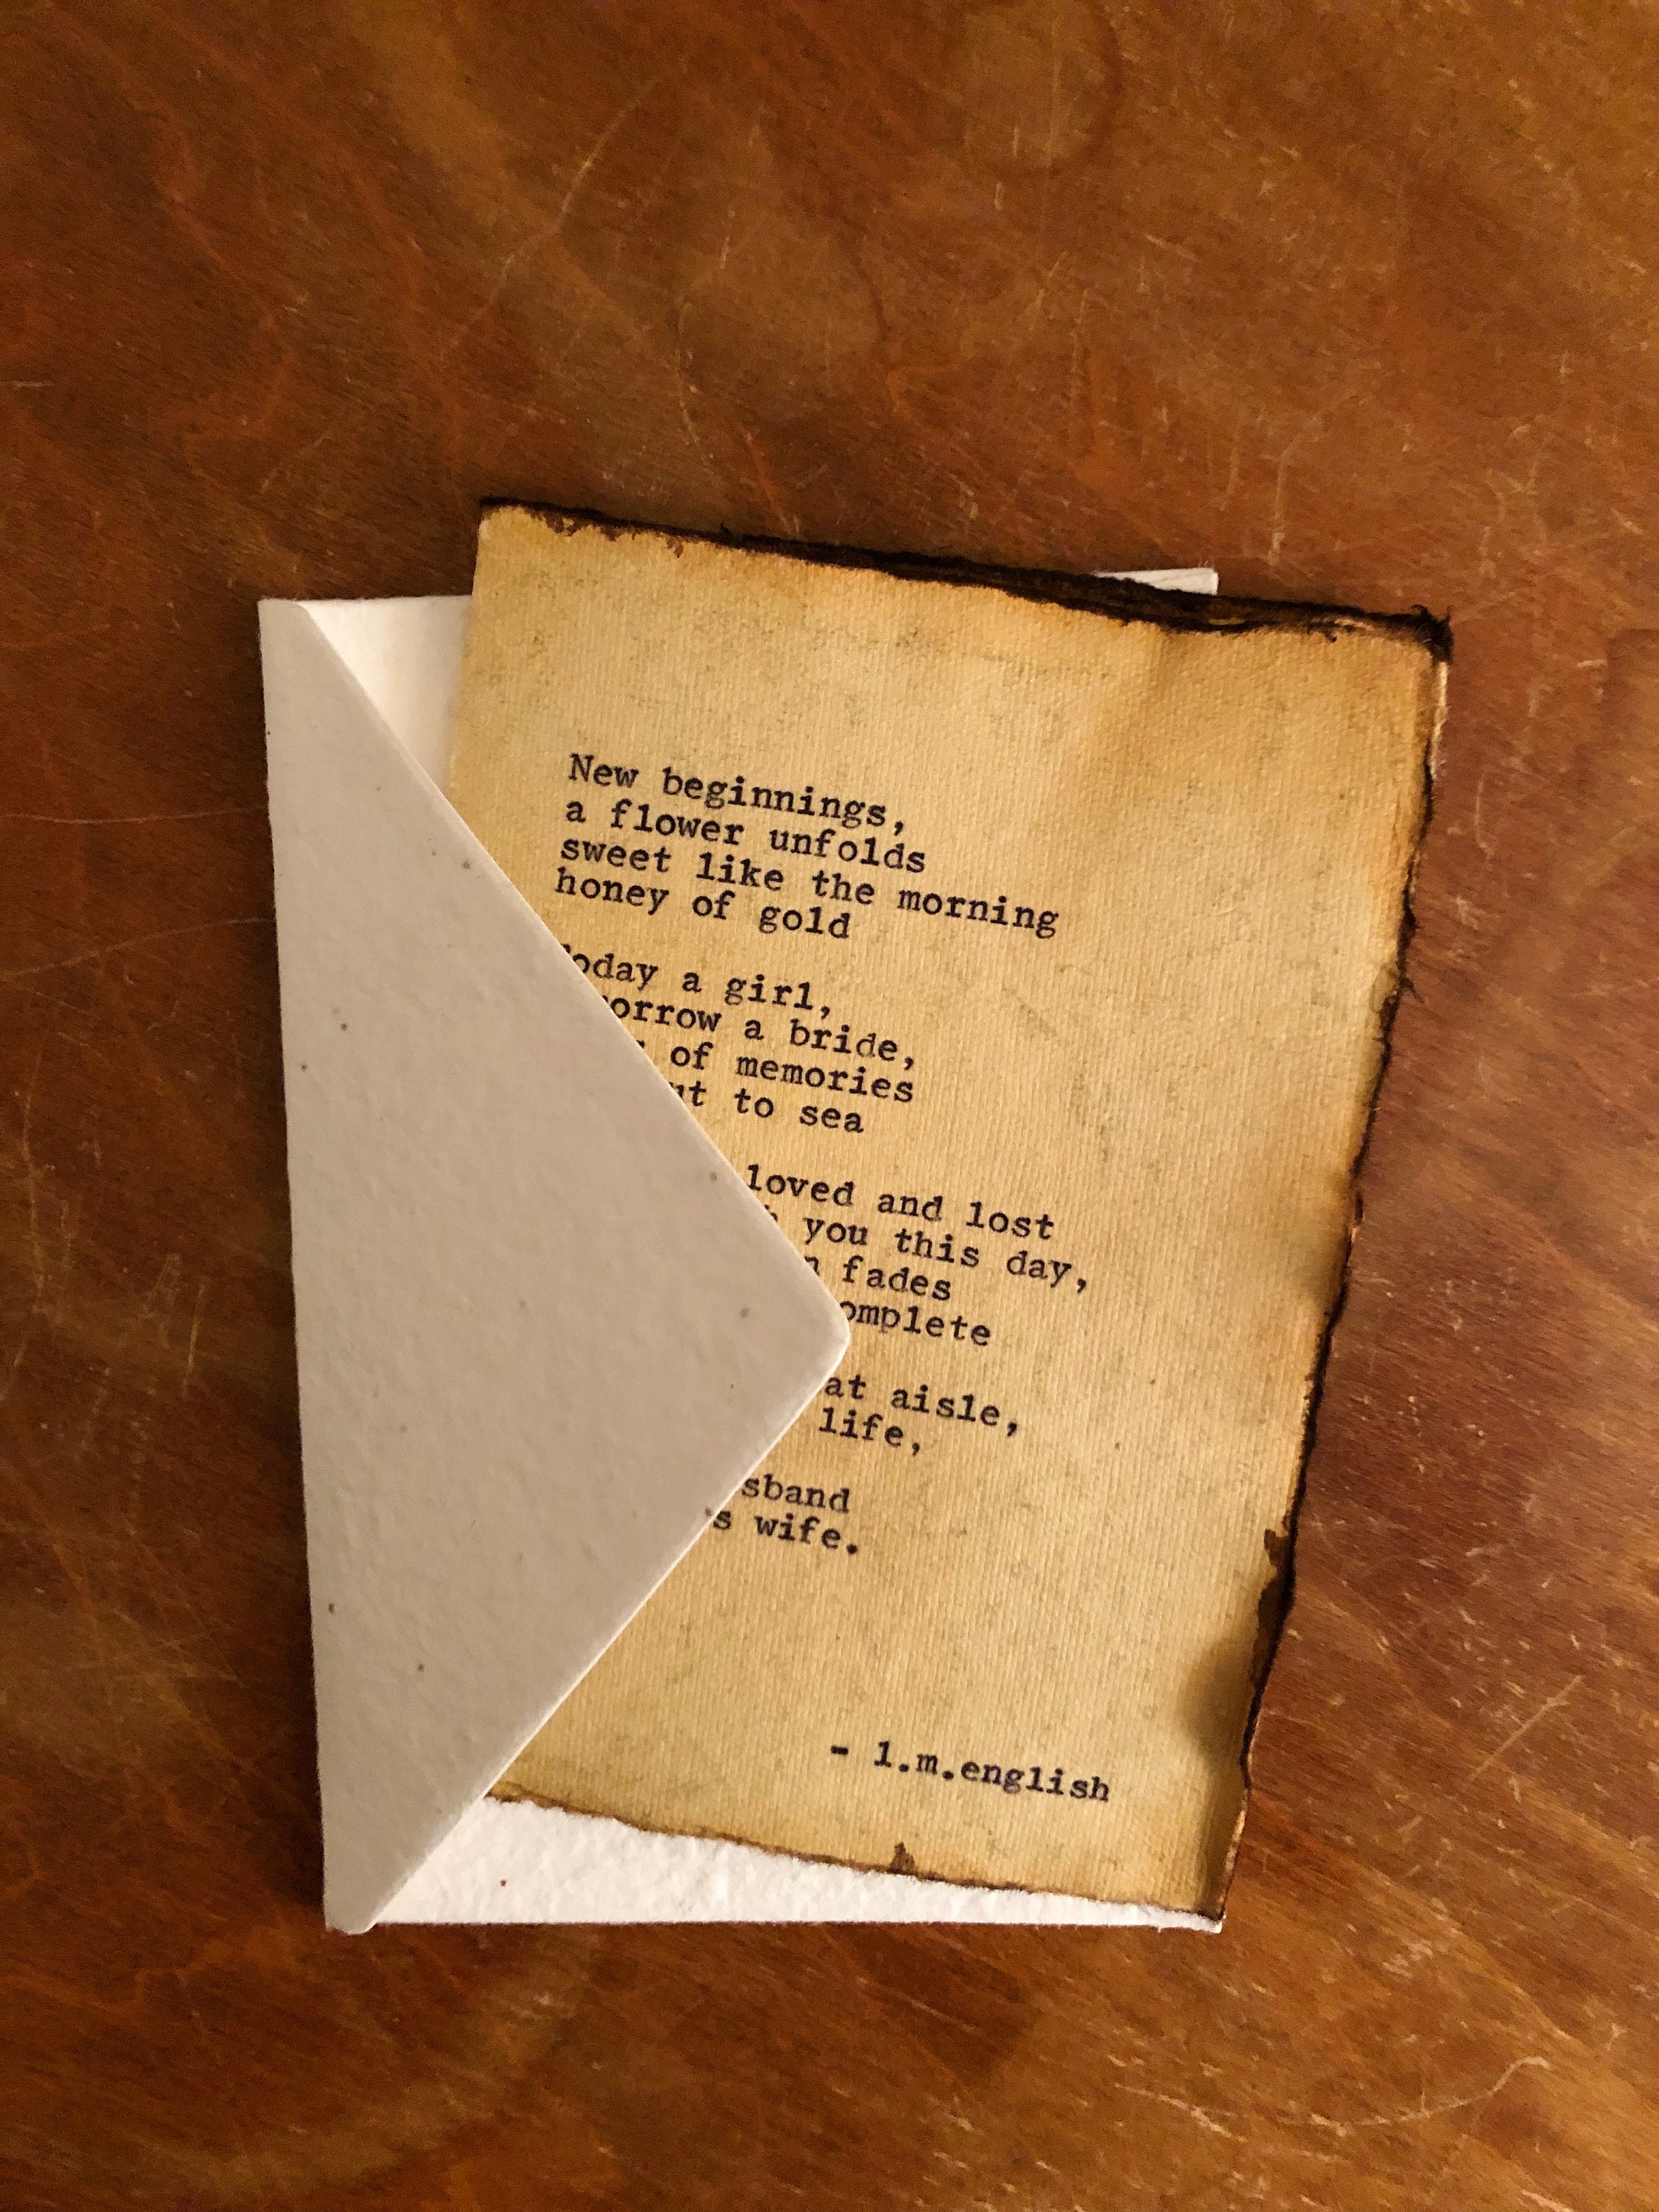 New beginnings,
a flower unfolds
sweet like the morning
honey of gold
Today a girl,
a bride,
of memories
to sea
loved and lost
you this day,
fades
aisle,
life,
wife.
- l.m.english